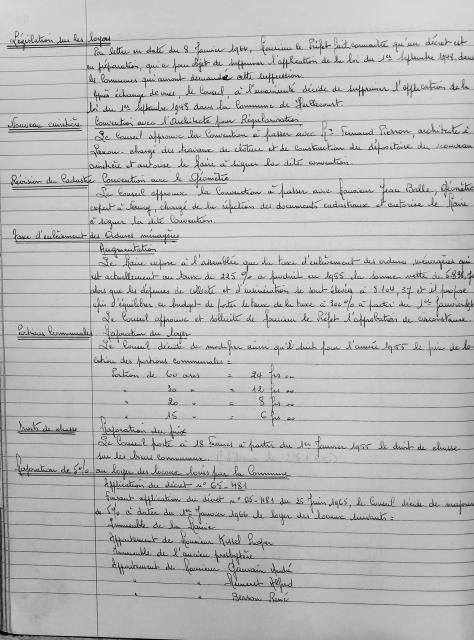 Législation sur les loyers
Par lettre en date du 8 Janvier 1966, Monsieur le Préfet fait connaître qu'un décret est
en préparation, qui a pour objet de supprimer l'application de la loi du 1er Septembre 1948, dans
les Communes qui auront demandé cette suppression.
Après échange de vues, le Conseil, à l'unanimité décide de supprimer l'application de la
loi du 1er Septembre 1948 dans la Commune de
Nouveau cimetière Convention avec l'Architecte pour Régularisation
Le Conseil approuve la Convention à passer avec Mr Fernand Pierson, architecte à
chargé des travaux de clôture et de construction du dépositoire du nouveau
cimetière et autorise le Maire à signer la dite convention.
Révision du Cadastre Convention avec le Géomètre
Le Conseil approuve la Convention à passer avec Monsieur Jean Balle, Géomètre
expert à Nancy, chargé de la réfection des documents cadastraux et autorise le Maire
à signer la dite Convention.
Taxe d'enlèvement des Ordures ménagères
Augmentation
Le Maire expose à l'assemblée que la taxe d'enlèvement des ordures ménagères qui
est actuellement au taux de 225 % a produit en 1965 la somme nette de
alors que les dépenses de collecte et d'incinération se sont élevées à 9.104,37 et il propose
afin d'équilibrer ce budget de porter le taux de la taxe à 300 % à partir du 1er Janvier
Le Conseil approuve et sollicite de Monsieur le Préfet l'approbation de circonstance.
Portions Communales Majoration du loyer
Le Conseil décide de modifier ainsi qu'il suit pour l'année 1955 le prix de lo-
cation des portions communales :
Portion de 60 ares = 24 frs "
" 30 " = 12 frs "
" 20 " = 8 frs "
" 15 " = 6 frs "
Droits de chasse Majoration du prix
Le Conseil porte à 18 Francs à partir du 1er Janvier 1955 le droit de chasse
sur les bois communaux.
Majoration de 5% au loyer des locaux loués par la Commune
Application du décret n° 65-481
Suivant application du décret n° 65-481 du 25 Juin 1965, le Conseil décide de majorer
de 5% à dater du 1er Janvier 1966 le loyer des locaux suivants :
Immeuble de la Mairie
Appartement de Monsieur Kissel Roger
Immeuble de l'ancien presbytère
Appartement de Monsieur Gauvain André
" " Alfred
" " Berson René